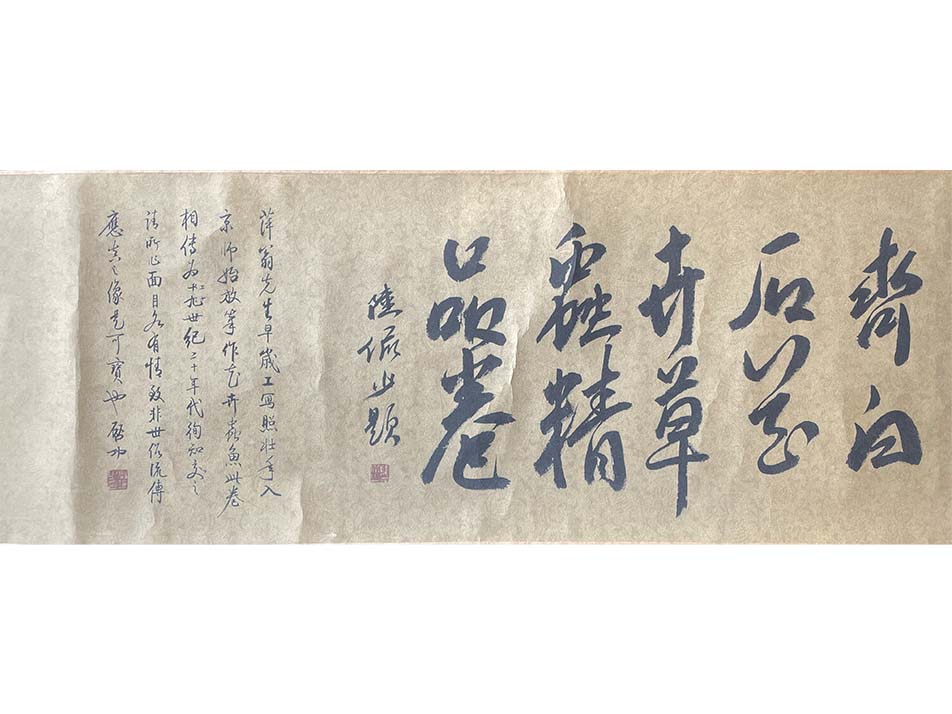 齊白
石花
卉草
蟲精
品卷
陸儼少題
萍翁先生早歲工寫照壯年入
京师始放筆作花卉蟲魚此卷
相傳为十九世紀二十年代徇知交之
请所作面目各有情致非世俗流傳
應真之像尤可寶也 啓功